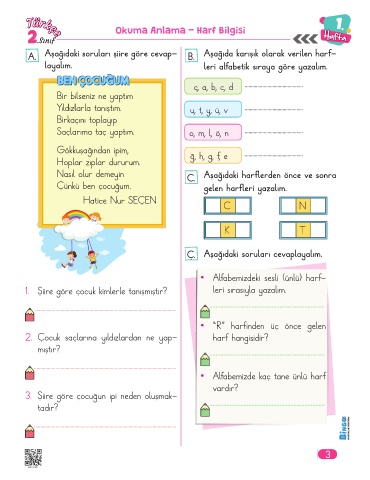 Türkçe
2.Sınıf
Okuma Anlama – Harf Bilgisi
1.
Hafta
A. Aşağıdaki soruları şiire göre cevap-
layalım.
BEN ÇOCUĞUM
Bir bilseniz ne yaptım
Yıldızlarla tanıştım.
Birkaçını toplayıp
Saçlarıma taç yaptım.
Gökkuşağından ipim,
Hoplar zıplar dururum.
Nasıl olur demeyin
Çünkü ben çocuğum.
Hatice Nur SEÇEN
1. Şiire göre çocuk kimlerle tanışmıştır?
2. Çocuk saçlarına yıldızlardan ne yap-
mıştır?
3. Şiire göre çocuğun ipi neden oluşmak-
tadır?
B. Aşağıda karışık olarak verilen harf-
leri alfabetik sıraya göre yazalım.
ç, a, b, c, d
u, t, y, ü, v
o, m, l, ö, n
ğ, h, g, f, e
C. Aşağıdaki harflerden önce ve sonra
gelen harfleri yazalım.
C
N
K
T
C. Aşağıdaki soruları cevaplayalım.
• Alfabemizdeki sesli (ünlü) harf-
leri sırasıyla yazalım.
• "R" harfinden üç önce gelen
harf hangisidir?
• Alfabemizde kaç tane ünlü harf
vardır?
BİNGO
3